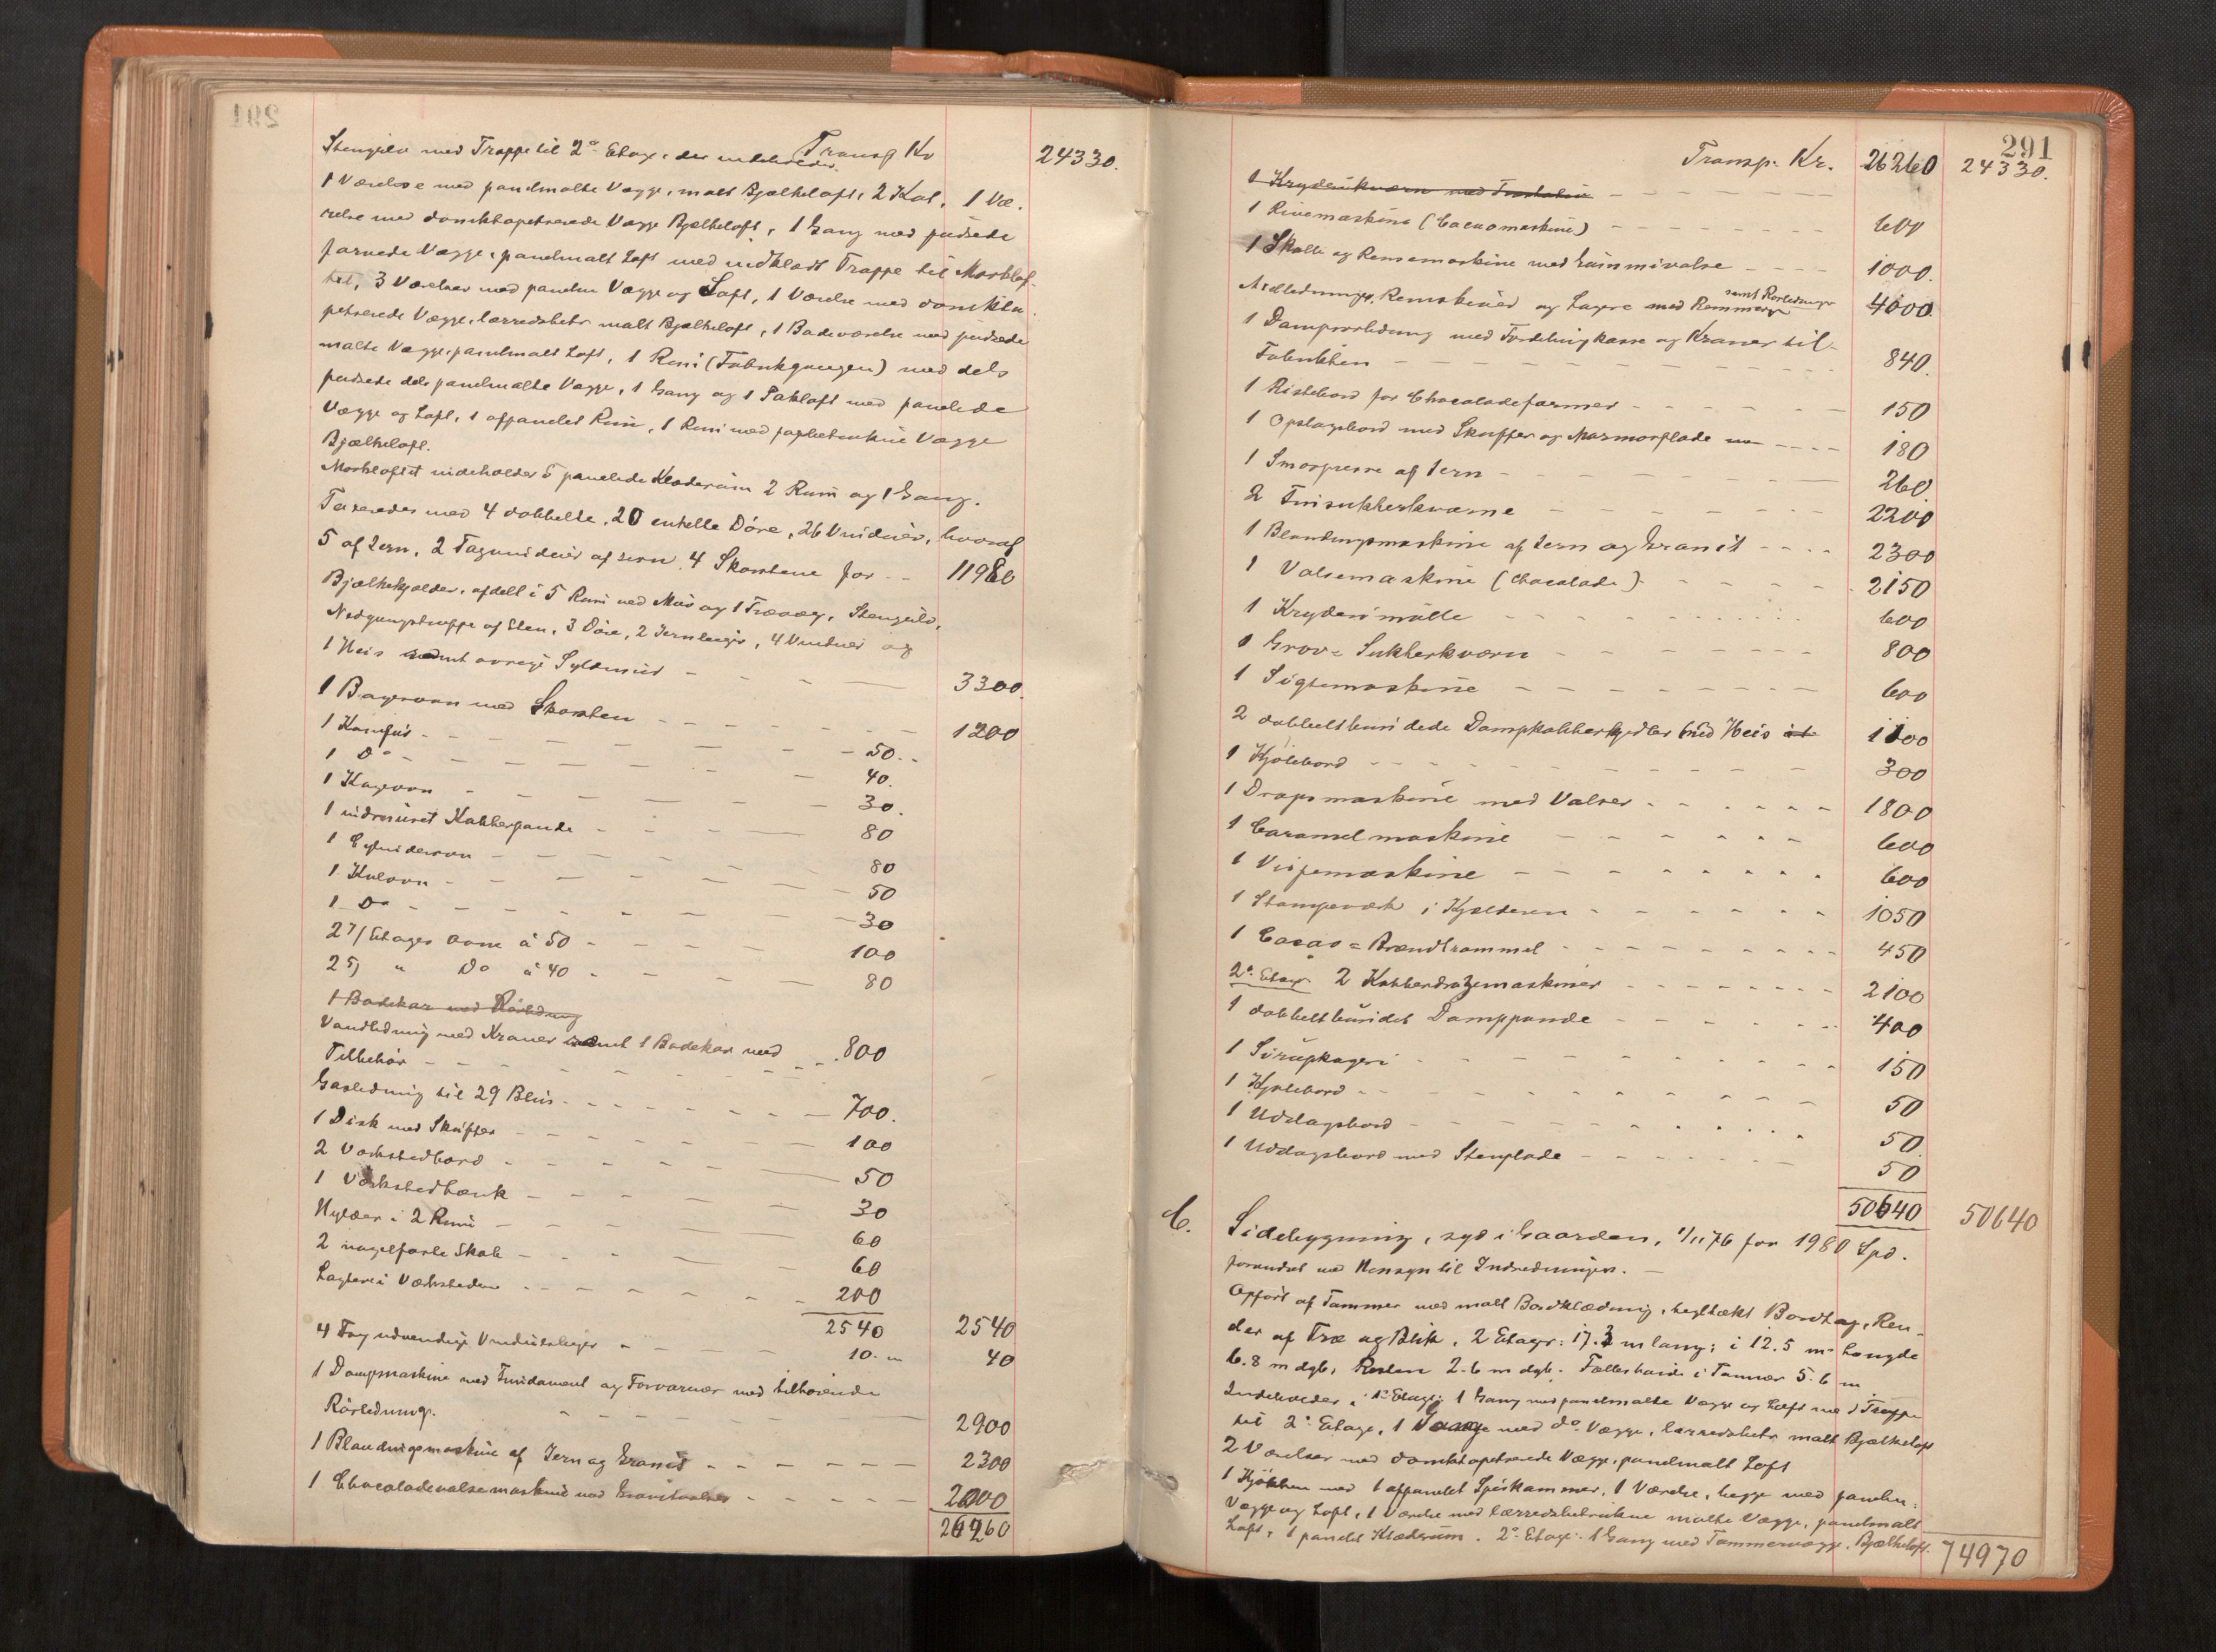 Transp Kr 24330.
Stengulv med Trappe til 2den Etage, der indeholder
1 Værelse med panelmalte Vægge, malt Bjælkeloft, 2 Kot, 1 Væ-
relse med dansktapetserede Vægge Bjælkeloft, 1 Gang med pudsede
farvede Vægge, panelmalt Loft med indklædt Trappe til Mørkloft-
tet, 3 Værelser med panelte Vægge og Loft, 1 Værelse med dansk ta-
petserede Vægge, lærredsbetr. malt Bjælkeloft, 1 Badeværelse med pudsede
malte Vægge, panelmalt Loft, 1 Rum (Fabrikgangen) med dels
pudsede dels panelmalte Vægge, 1 Gang og 1 Takloft med panelede
Vægge og Loft, 1 afpanelet Rum, 1 Rum med papbetrukne Vægge
Bjælkeloft.
Mørkloftet indeholder 5 panelede Klæderum 2 Rum og 1 Gang.
Taxeredes med 4 dobbelte, 20 enkelte Döre, 26 Vinduer, hvoraf
5 af Jern, 2 Tagvinduer af Jern. 4 Skorstene for - - 11980
Bjælkekjælder, afdelt i 5 Rum ved Mur og 1 Trævæg, Stengulv,
Nedgangstrappe af Sten, 3 Döre, 2 Jernluger, 4 Vinduer og
1 Heis samt øvrige Fyldmur - - - 3300.
1 Bagerovn med Skorsten - - - 1200
1 Komfur - - - 50. -
1 Do - - - 40.
1 Kagovn - - - 30.
1 indmuret Kobberpande - - - 80
1 Cylinderovn - - - 80
1 Kulovn - - - 50
1 Do - - - 30
2 7/ Etages Ovne à 50 - - - 100
2 5/ " Do à 40 - - - 80
1 Badekar med Rörledning
Vandledning med Kraner samt 1 Badekar med
Tilbehör - - - 800
Gasledning til 29 Blus - - - 700.
1 Disk med Skuffer - - - 100
2 Værkstedbord - - - 50
1 Værkstedbænk - - - 30
Hylder i 2 Rum - - - 60
2 nagelfaste Skab - - - 60
i Værksteder - - - 200
2540 2540
4 Fag udvendige - - - 10. - 40
1 Dampmaskine med Fundament og Forvarmer med tilhörende
Rörledning. - - - 2900
1 Blandingsmaskine af Jern og Granit - - - 2300
1 Chocoladevalsemaskine med Granitvalser - - - 2000
26260
291
Transp. Kr. 26260 24330.
1 Kryderikværn med
1 Rivemaskine (Cacaomaskine) - - - 600
1 Skalle og Rensemaskine med Gummivalse - - - 1000.
Axelledninger, Remskiver og Lagere med Remmer samt Rørledninger 4000
1 Dampvorledning med Fordelingskasse og Kraner til
Fabrikken - - - 840.
1 Ristebord for Chocoladeformer - - - 150
1 Opslagsbord med Skuffer og Marmorplade - - - 180
1 Smørpresse af Jern - - - 260.
2 Finsukkerkværne - - - 2200
1 Blandingsmaskine af Jern og Granit - - - 2300
1 Valsemaskine (Chocolade) - - - 2150
1 Kryderimölle - - - 600
1 Grov= Sukkerkværn - - - 800
1 Sigtemaskine - - - 600
2 dobbeltbundede Dampkobberkjedler med Heis 1100
1 Kjölebord - - - 300
1 Dropsmaskine med Valser - - - 1800
1 Caramelmaskine - - - 600
1 Vispemaskine - - - 600
1 Stampeværk i Kjælderen - - - 1050
1 Cacao= Brændtrommel - - - 450
2den Etage 2 Kobberdragemaskiner - - - 2100
1 dobbeltbundet Damppande - - - 400
1 Sirupkogeri - - - 150
1 Kjölebord - - - 50
1 Uddagsbord - - - 50.
1 Uddagsbord med Stenplade - - - 50
50640 50640
C. Sidebygning, syd i Gaarden, 1/11 76 for 1980 Spd.
forandret med Hensyn til Indredningen. -
Opfört af Tømmer med malt Bordklædning, tegltækt Bordtag, Ren-
der af Træ og Blik, 2 Etager: 17.3 m lang; i 12.5 m Længde
6.8 m dyb, Resten 2.6 m dyb. Fælleshøide i Tømmer 5.6 m
Indeholder i 1ste Etage: 1 Gang med panelmalte Vægge og Loft med Trappe
til 2den Etage, 1 Gang med do. Vægge, lærredsbetr. malt Bjælkeloft
2 Værelser med dansktapetserede Vægge, panelmalt Loft
1 Kjökken med 1 afpanelet Spiskammer, 1 Værelse, begge med panelte
Vægge og Loft, 1 Værelse med lærredsbetrukne malte Vægge, panelmalt
Loft, 1 panelet Klæderum. 2den Etage: 1 Gang med Tømmervægge, Bjælkeloft.
74970